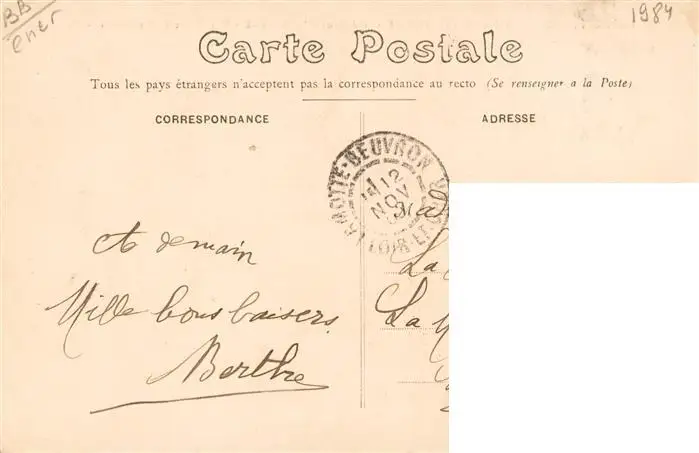 BB
1984
Carte Postale
Tous les pays étrangers n'acceptent pas la correspondance au recto (Se renseigner a la Poste)
CORRESPONDANCE
ADRESSE
LAMOTTE-BEUVRON
12
NOV
LOIR-ET-CHER
A demain
Mille bons baisers
Berthe
La
La